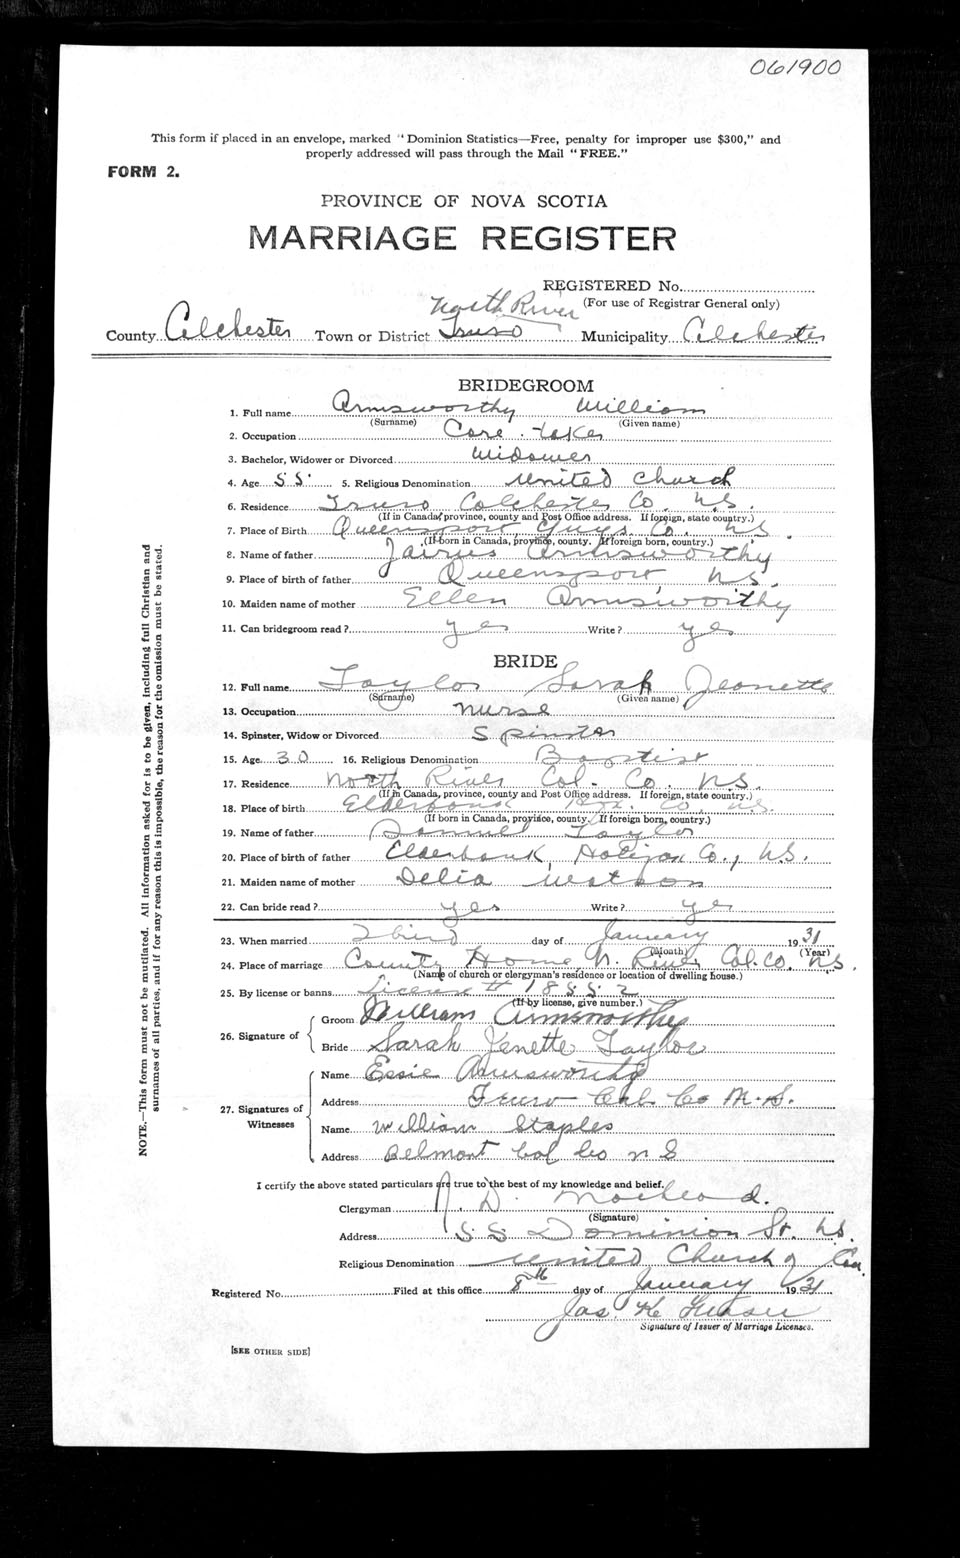 061900
This form if placed in an envelope, marked "Dominion Statistics—Free, penalty for improper use $300," and
properly addressed will pass through the Mail "FREE."
FORM 2.
PROVINCE OF NOVA SCOTIA
MARRIAGE REGISTER
REGISTERED No.
(For use of Registrar General only)
North River
County Colchester Town or District Truro Municipality Colchester
BRIDEGROOM
1. Full name Armsworthy William
(Surname) (Given name)
2. Occupation Care-taker
3. Bachelor, Widower or Divorced Widower
4. Age 55 5. Religious Denomination United Church
6. Residence Truro Colchester Co. N.S.
(If in Canada, province, county and Post Office address. If foreign, state country.)
7. Place of Birth Queensport, Guys. Co. N.S.
(If born in Canada, province, county. If foreign born, country.)
8. Name of father Jairus Armsworthy
9. Place of birth of father Queensport, N.S.
10. Maiden name of mother Ellen Armsworthy
11. Can bridegroom read? yes Write? yes
BRIDE
12. Full name Taylor Sarah Jeanette
(Surname) (Given name)
13. Occupation nurse
14. Spinster, Widow or Divorced Spinster
15. Age 30 16. Religious Denomination Baptist
17. Residence North River Col. Co. N.S.
(If in Canada, province, county and Post Office address. If foreign, state country.)
18. Place of birth Elderbank Hfx. Co. N.S.
(If born in Canada, province, county. If foreign born, country.)
19. Name of father Samuel Taylor
20. Place of birth of father Elderbank, Halifax Co., N.S.
21. Maiden name of mother Delia Watson
22. Can bride read? yes Write? yes
23. When married Third day of January 1931
(Month) (Year)
24. Place of marriage County Home N. River Col. Co. N.S.
(Name of church or clergyman's residence or location of dwelling house.)
25. By license or banns License # 18552
(If by license, give number.)
26. Signature of
Groom William Armsworthy
Bride Sarah Jenette Taylor
27. Signatures of Witnesses
Name Essie Armsworthy
Address Truro Col. Co N.S.
Name William Staples
Address Belmont Col Co N S
I certify the above stated particulars are true to the best of my knowledge and belief.
Clergyman A. D. MacLeod.
(Signature)
Address 55 Dominion St. N.S.
Religious Denomination United Church of Can.
Registered No. Filed at this office 8th day of January 1931
Jas. K.
Signature of Issuer of Marriage Licenses.
[SEE OTHER SIDE]
NOTE.—This form must not be mutilated. All information asked for is to be given, including full Christian and
surnames of all parties, and if for any reason this is impossible, the reason for the omission must be stated.